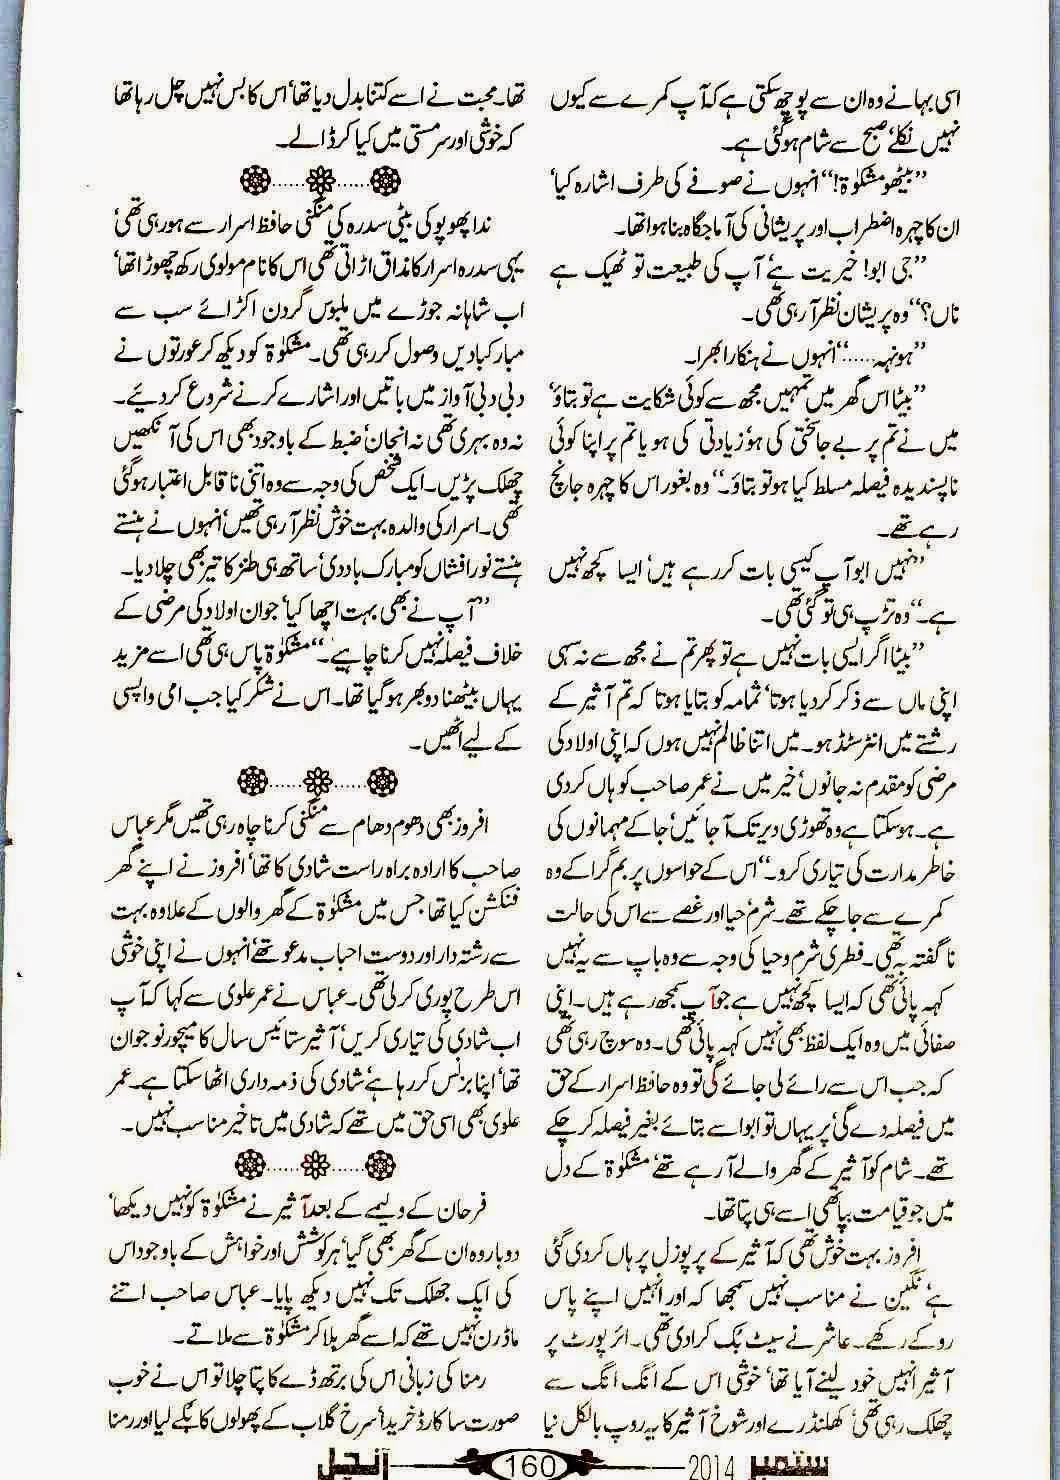 اسی بہانے وہ ان سے پوچھ سکتی ہے کہ آپ کمرے سے کیوں
نہیں نکلے‘ صبح سے شام ہوگئی ہے۔
’’بیٹھو مشکوٰة!‘‘ انہوں نے صوفے کی طرف اشارہ کیا‘
ان کا چہرہ اضطراب اور پریشانی کی آماجگاہ بنا ہوا تھا۔
’’جی ابو! خیریت ہے‘ آپ کی طبیعت تو ٹھیک ہے
ناں؟‘‘ وہ پریشان نظر آرہی تھی۔
’’ہونہہ......‘‘ انہوں نے ہنکارا بھرا۔
’’بیٹا اس گھر میں تمہیں مجھ سے کوئی شکایت ہے تو بتاؤ‘
میں نے تم پر بے جا سختی کی ہو‘ زیادتی کی ہو یا تم پر اپنا کوئی
ناپسندیدہ فیصلہ مسلط کیا ہو تو بتاؤ۔‘‘ وہ بغور اس کا چہرہ جانچ
رہے تھے۔
’’نہیں ابو آپ کیسی بات کررہے ہیں‘ ایسا کچھ نہیں
ہے۔‘‘ وہ تڑپ ہی تو گئی تھی۔
’’بیٹا اگر ایسی بات نہیں ہے تو پھر تم نے مجھ سے نہ سہی
اپنی ماں سے ذکر کردیا ہوتا‘ ثمامہ کو بتایا ہوتا کہ تم آثیر کے
رشتے میں انٹرسٹڈ ہو۔ میں اتنا ظالم نہیں ہوں کہ اپنی اولاد کی
مرضی کو مقدم نہ جانوں‘ خیر میں نے عمر صاحب کو ہاں کردی
ہے۔ ہوسکتا ہے وہ تھوڑی دیر تک آجائیں‘ جا کے مہمانوں کی
خاطر مدارت کی تیاری کرو۔‘‘ اس کے حواسوں پر بم گرا کے وہ
کمرے سے جاچکے تھے۔ شرم‘ حیا اور غصے سے اس کی حالت
ناگفتہ بہ تھی۔ فطری شرم وحیا کی وجہ سے وہ باپ سے یہ نہیں
کہہ پائی تھی کہ ایسا کچھ نہیں ہے جو آپ سمجھ رہے ہیں۔ اپنی
صفائی میں وہ ایک لفظ بھی نہیں کہہ پائی تھی۔ وہ سوچ رہی تھی
کہ جب اس سے رائے لی جائے گی تو وہ حافظ اسرار کے حق
میں فیصلہ دے گی‘ پر یہاں تو ابو اسے بتائے بغیر فیصلہ کرچکے
تھے۔ شام کو آثیر کے گھر والے آرہے تھے‘ مشکوٰة کے دل
میں جو قیامت بپا تھی اسے ہی پتا تھا۔
افروز بہت خوش تھی کہ آثیر کے پرپوزل پر ہاں کردی گئی
ہے‘ نگین نے مناسب نہیں سمجھا کہ اور انہیں اپنے پاس
روکے رکھے۔ عاشر نے سیٹ بک کرادی تھی۔ ائرپورٹ پر
آثیر انہیں خود لینے آیا تھا‘ خوشی اس کے انگ انگ سے
چھلک رہی تھی‘ کھلنڈرے اور شوخ آثیر کا یہ روپ بالکل نیا
تھا۔ محبت نے اسے کتنا بدل دیا تھا‘ اس کا بس نہیں چل رہا تھا
کہ خوشی اور سرمستی میں کیا کر ڈالے۔
ندا پھوپو کی بیٹی سدرہ کی منگنی حافظ اسرار سے ہورہی تھی‘
یہی سدرہ اسرار کا مذاق اڑاتی تھی اس کا نام مولوی رکھ چھوڑا تھا‘
اب شاہانہ جوڑے میں ملبوس گردن اکڑائے سب سے
مبارکبادیں وصول کررہی تھی۔ مشکوٰة کو دیکھ کر عورتوں نے
دبی دبی آواز میں باتیں اور اشارے کرنے شروع کردیے۔
نہ وہ بہری تھی نہ انجان‘ ضبط کے باوجود بھی اس کی آنکھیں
چھلک پڑیں۔ ایک شخص کی وجہ سے وہ اتنی ناقابل اعتبار ہوگئی
تھی۔ اسرار کی والدہ بہت خوش نظر آرہی تھیں‘ انہوں نے ہنستے
ہنستے نور افشاں کو مبارک باد دی‘ ساتھ ہی طنز کا تیر بھی چلا دیا۔
’’آپ نے بھی بہت اچھا کیا‘ جوان اولاد کی مرضی کے
خلاف فیصلہ نہیں کرنا چاہیے۔‘‘ مشکوٰة پاس ہی تھی اسے مزید
یہاں بیٹھنا دوبھر ہوگیا تھا۔ اس نے شکر کیا جب امی واپسی
کے لیے اٹھیں۔
افروز بھی دھوم دھام سے منگنی کرنا چاہ رہی تھیں مگر عباس
صاحب کا ارادہ براہ راست شادی کا تھا‘ افروز نے اپنے گھر
فنکشن کیا تھا جس میں مشکوٰة کے گھر والوں کے علاوہ بہت
سے رشتہ دار اور دوست احباب مدعو تھے‘ انہوں نے اپنی خوشی
اس طرح پوری کرلی تھی۔ عباس نے عمر علوی سے کہا کہ آپ
اب شادی کی تیاری کریں‘ آثیر ستائیس سال کا میچور نوجوان
تھا‘ اپنا بزنس کررہا ہے‘ شادی کی ذمہ داری اٹھا سکتا ہے۔ عمر
علوی بھی اسی حق میں تھے کہ شادی میں تاخیر مناسب نہیں۔
فرحان کے ولیمے کے بعد آثیر نے مشکوٰة کو نہیں دیکھا‘
دوبار وہ ان کے گھر بھی گیا‘ ہر کوشش اور خواہش کے باوجود اس
کی ایک جھلک تک نہیں دیکھ پایا۔ عباس صاحب اتنے
ماڈرن نہیں تھے کہ اسے گھر بلا کر مشکوٰة سے ملاتے۔
رمنا کی زبانی اس کی برتھ ڈے کا پتا چلا تو اس نے خوب
صورت سا کارڈ خریدا‘ سرخ گلاب کے پھولوں کا بُکے لیا اور رمنا
ستمبر 2014 160 آنچل